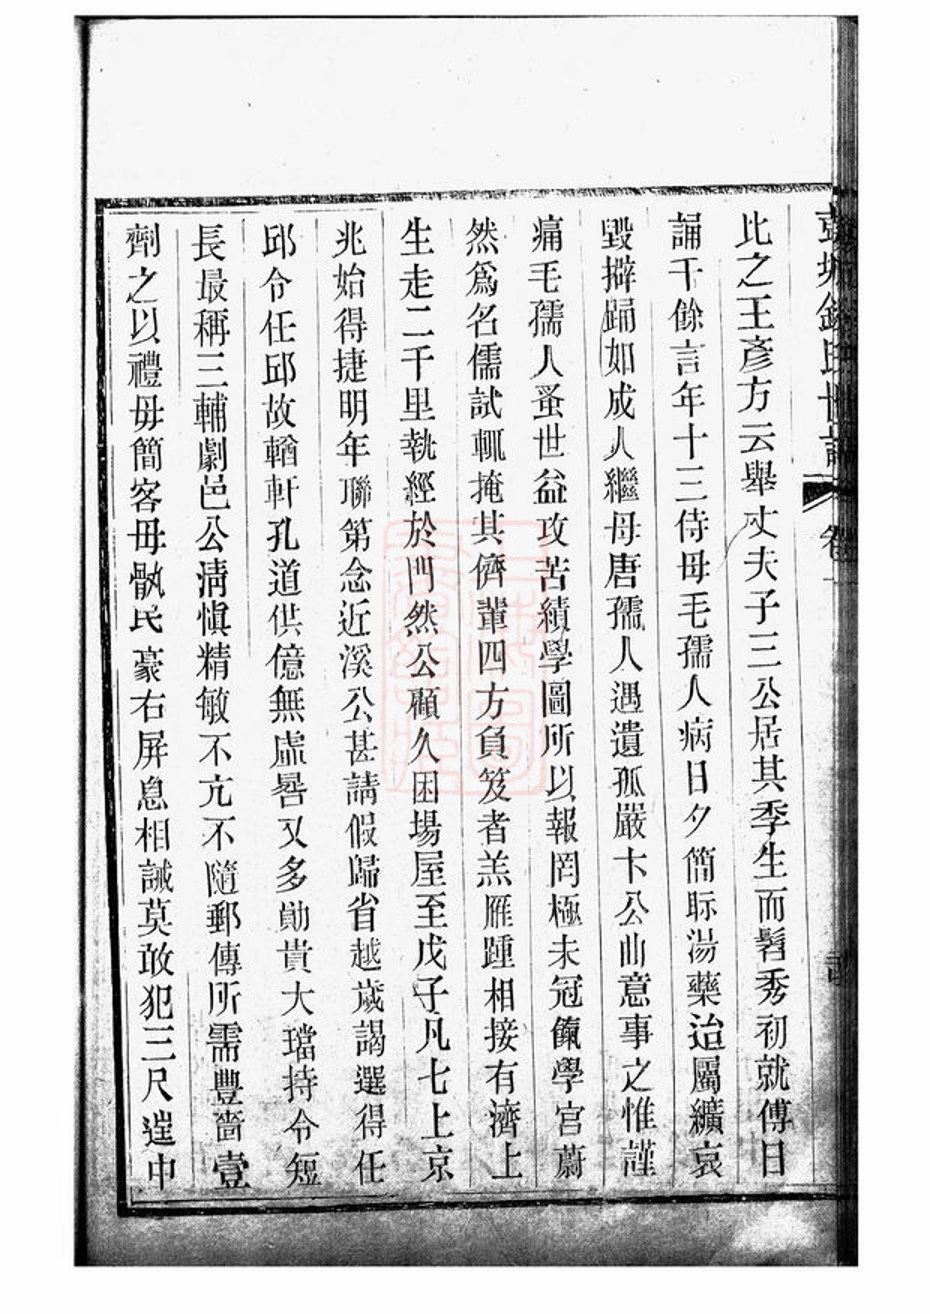 彭城錢氏世譜 卷
比之王彥方云舉丈夫子三公居其季生而髫秀初就傅日
誦千餘言年十三侍母毛孺人病日夕簡眎湯藥迨屬纊哀
毀擗踊如成人繼母唐孺人遇遺孤嚴卞公曲意事之惟謹
痛毛孺人蚤世益攻苦績學圖所以報罔極未冠餼學宮蔚
然爲名儒試輒掩其儕輩四方負笈者羔雁踵相接有濟上
生走二千里執經於門然公顧久困場屋至戊子凡七上京
兆始得捷明年聯第念近溪公甚請假歸省越歲謁選得任
邱令任邱故輶軒孔道供億無虛晷又多勛貴大璫持令短
長最稱三輔劇邑公淸愼精敏不亢不隨郵傳所需豐嗇壹
劑之以禮毋簡客毋骩民豪右屏息相誡莫敢犯三尺逞中